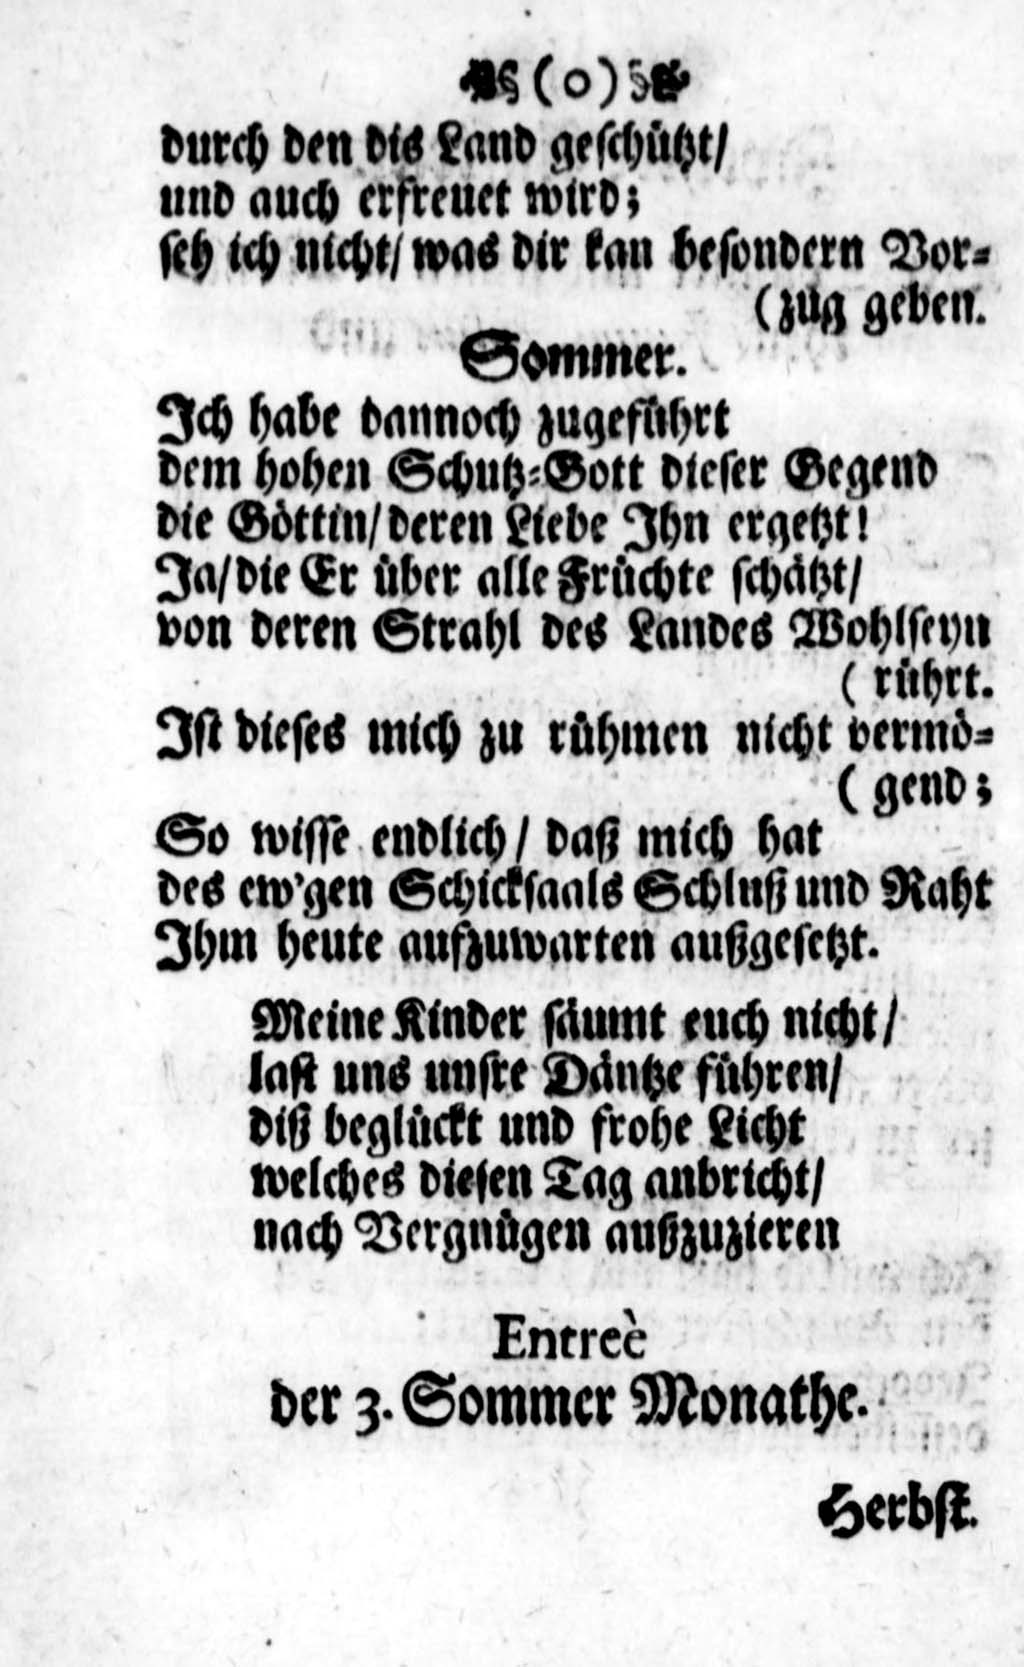 § ( o ) §
durch den dis Land geschützt/
und auch erfreuet wird;
seh ich nicht/ was dir kan besondern Vor-
(zug geben.
Sommer.
Ich habe dannoch zugeführt
dem hohen Schutz-Gott dieser Gegend
die Göttin/ deren Liebe Ihn ergetzt!
Ja/ die Er über alle Früchte schätzt/
von deren Strahl des Landes Wohlseyn
( rührt.
Ist dieses mich zu rühmen nicht vermö-
( gend;
So wisse endlich/ daß mich hat
des ew'gen Schicksaals Schluß und Raht
Ihm heute aufzuwarten außgesetzt.
Meine Kinder säumt euch nicht/
last uns unsre Däntze führen/
diß beglückt und frohe Licht
welches diesen Tag anbricht/
nach Vergnügen außzuzieren
Entreè
der 3. Sommer Monathe.
Herbst.